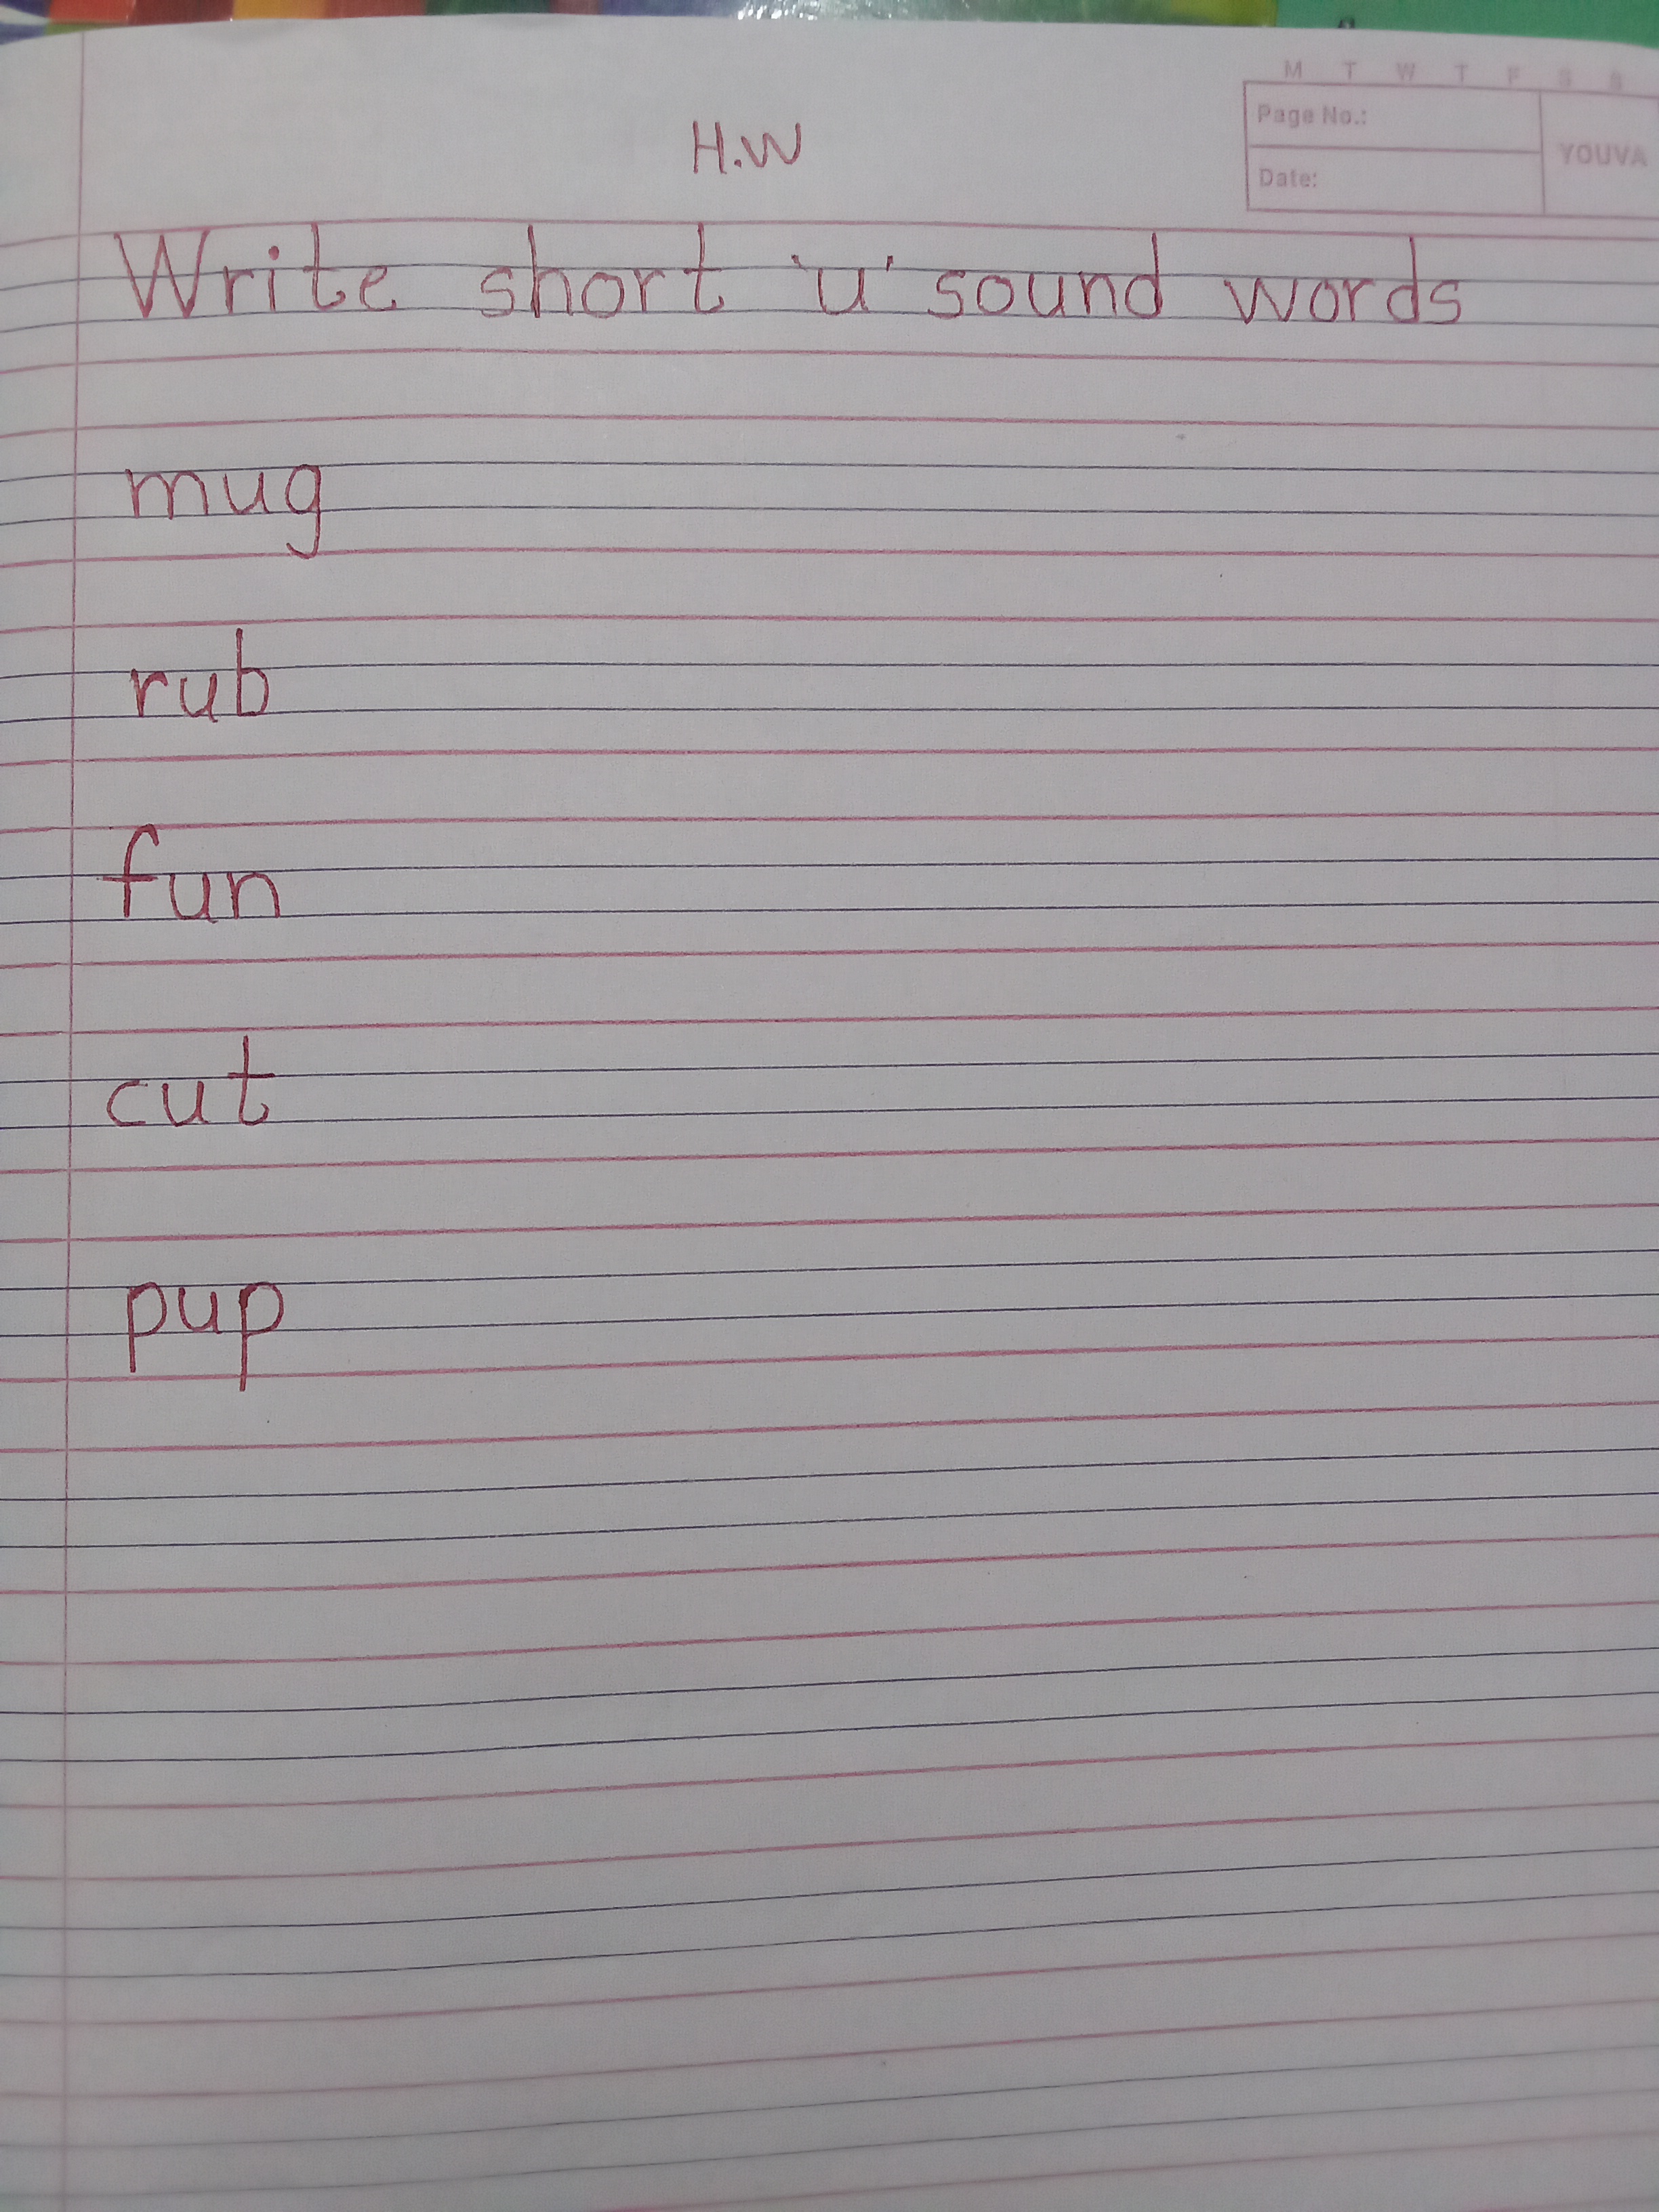 M T W T F S S
Page No.:
YOUVA
Date:
H.W
Write short 'u' sound words
mug
rub
fun
cut
pup